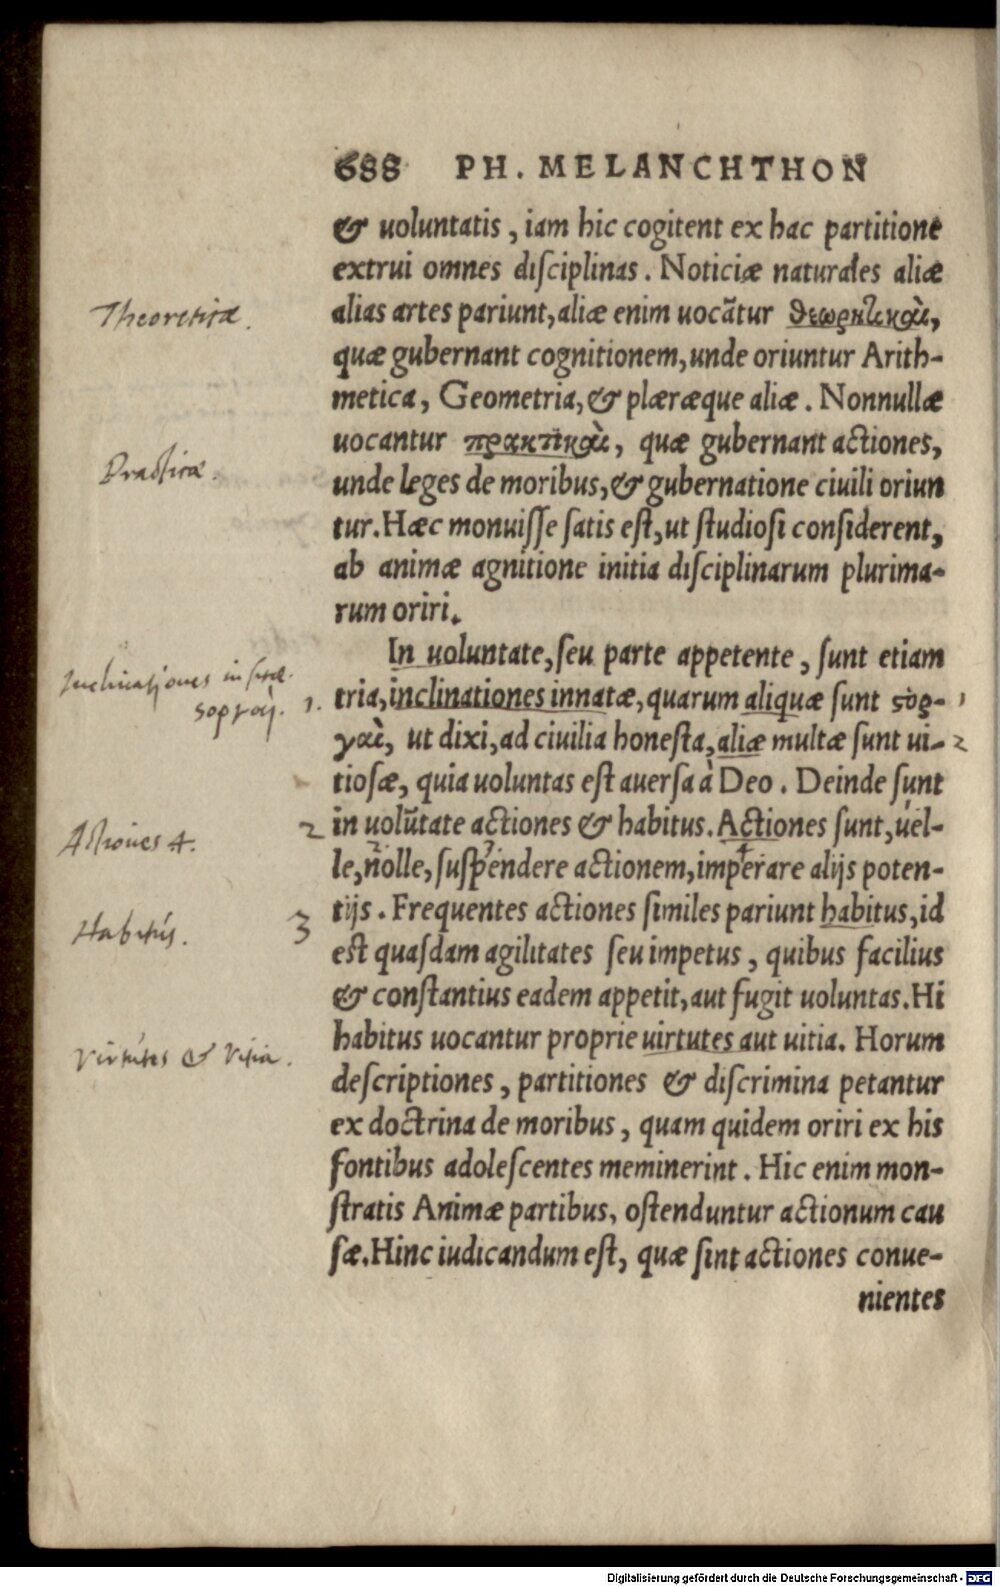 688 PH. MELANCHTHON
& uoluntatis, iam hic cogitent ex hac partitione
extrui omnes disciplinas. Noticiæ naturales aliæ
Theoreticæ.
alias artes pariunt, aliæ enim uocãtur θεωρητικαὶ,
quæ gubernant cognitionem, unde oriuntur Arith-
metica, Geometria, & plæræque aliæ. Nonnullæ
Practicæ.
uocantur πρακτικαὶ, quæ gubernant actiones,
unde leges de moribus, & gubernatione ciuili oriun
tur. Hæc monuisse satis est, ut studiosi considerent,
ab animæ agnitione initia disciplinarum plurima-
rum oriri.
In uoluntate, seu parte appetente, sunt etiam
Inclinationes insitæ.
στοργαὶ. 1.
tria, inclinationes innatæ, quarum aliquæ sunt στορ- 1
γαὶ, ut dixi, ad ciuilia honesta, aliæ multæ sunt ui- 2
tiosæ, quia uoluntas est auersa à Deo. Deinde sunt
Actiones 4. 2
in uolũtate actiones & habitus. Actiones sunt, uel-
le, nolle, suspendere actionem, imperare alijs poten-
Habitus. 3
tijs. Frequentes actiones similes pariunt habitus, id
est quasdam agilitates seu impetus, quibus facilius
& constantius eadem appetit, aut fugit uoluntas. Hi
Virtutes & Vitia.
habitus uocantur proprie uirtutes aut uitia. Horum
descriptiones, partitiones & discrimina petantur
ex doctrina de moribus, quam quidem oriri ex his
fontibus adolescentes meminerint. Hic enim mon-
stratis Animæ partibus, ostenduntur actionum cau
sæ. Hinc iudicandum est, quæ sint actiones conue-
nientes
Digitalisierung gefördert durch die Deutsche Forschungsgemeinschaft - DFG